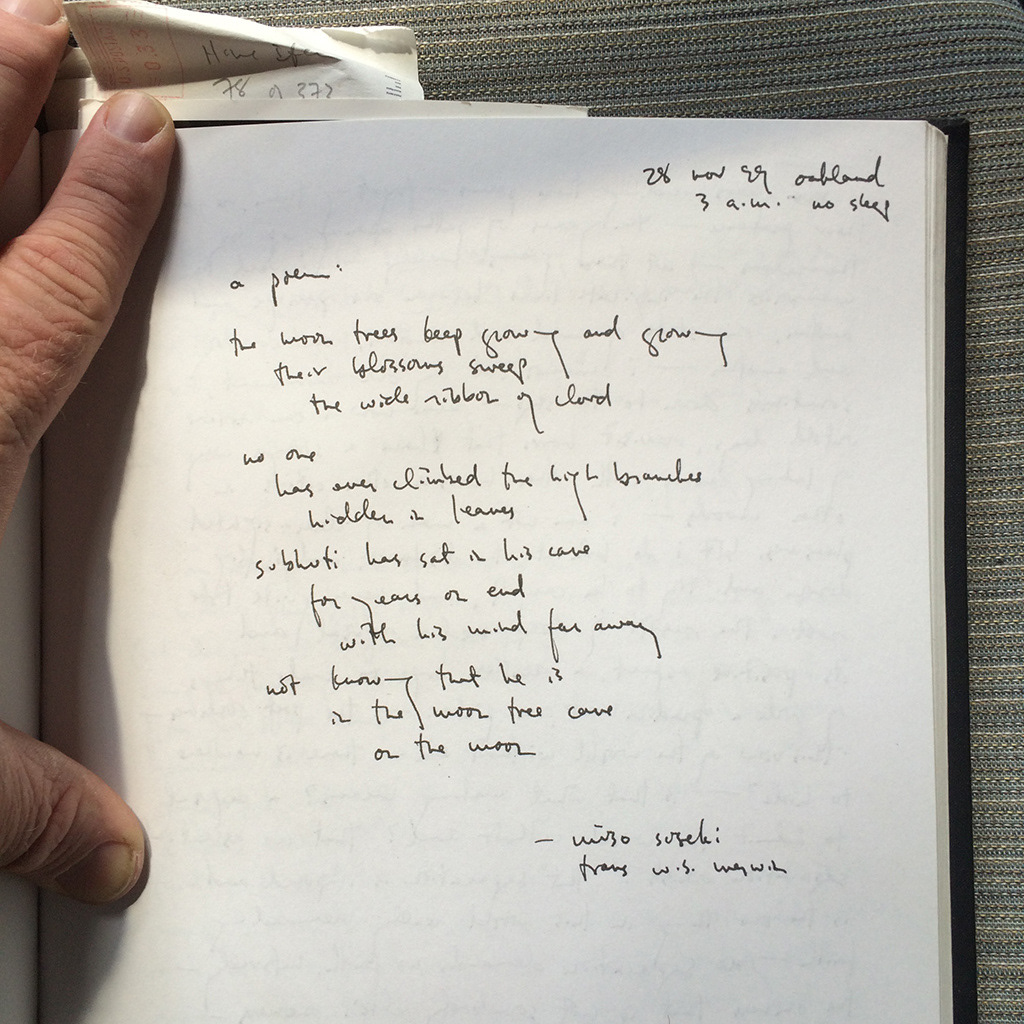 78 of 373
28 nov 99 oakland
3 a.m. no sleep
a poem:
the moon trees keep growing and growing
their blossoms sweep
the wide ribbon of cloud
no one
has ever climbed the high branches
hidden in leaves
subhuti has sat in his cave
for years on end
with his mind far away
not knowing that he is
in the moon tree cave
on the moon
– muso soseki
trans w.s. merwin